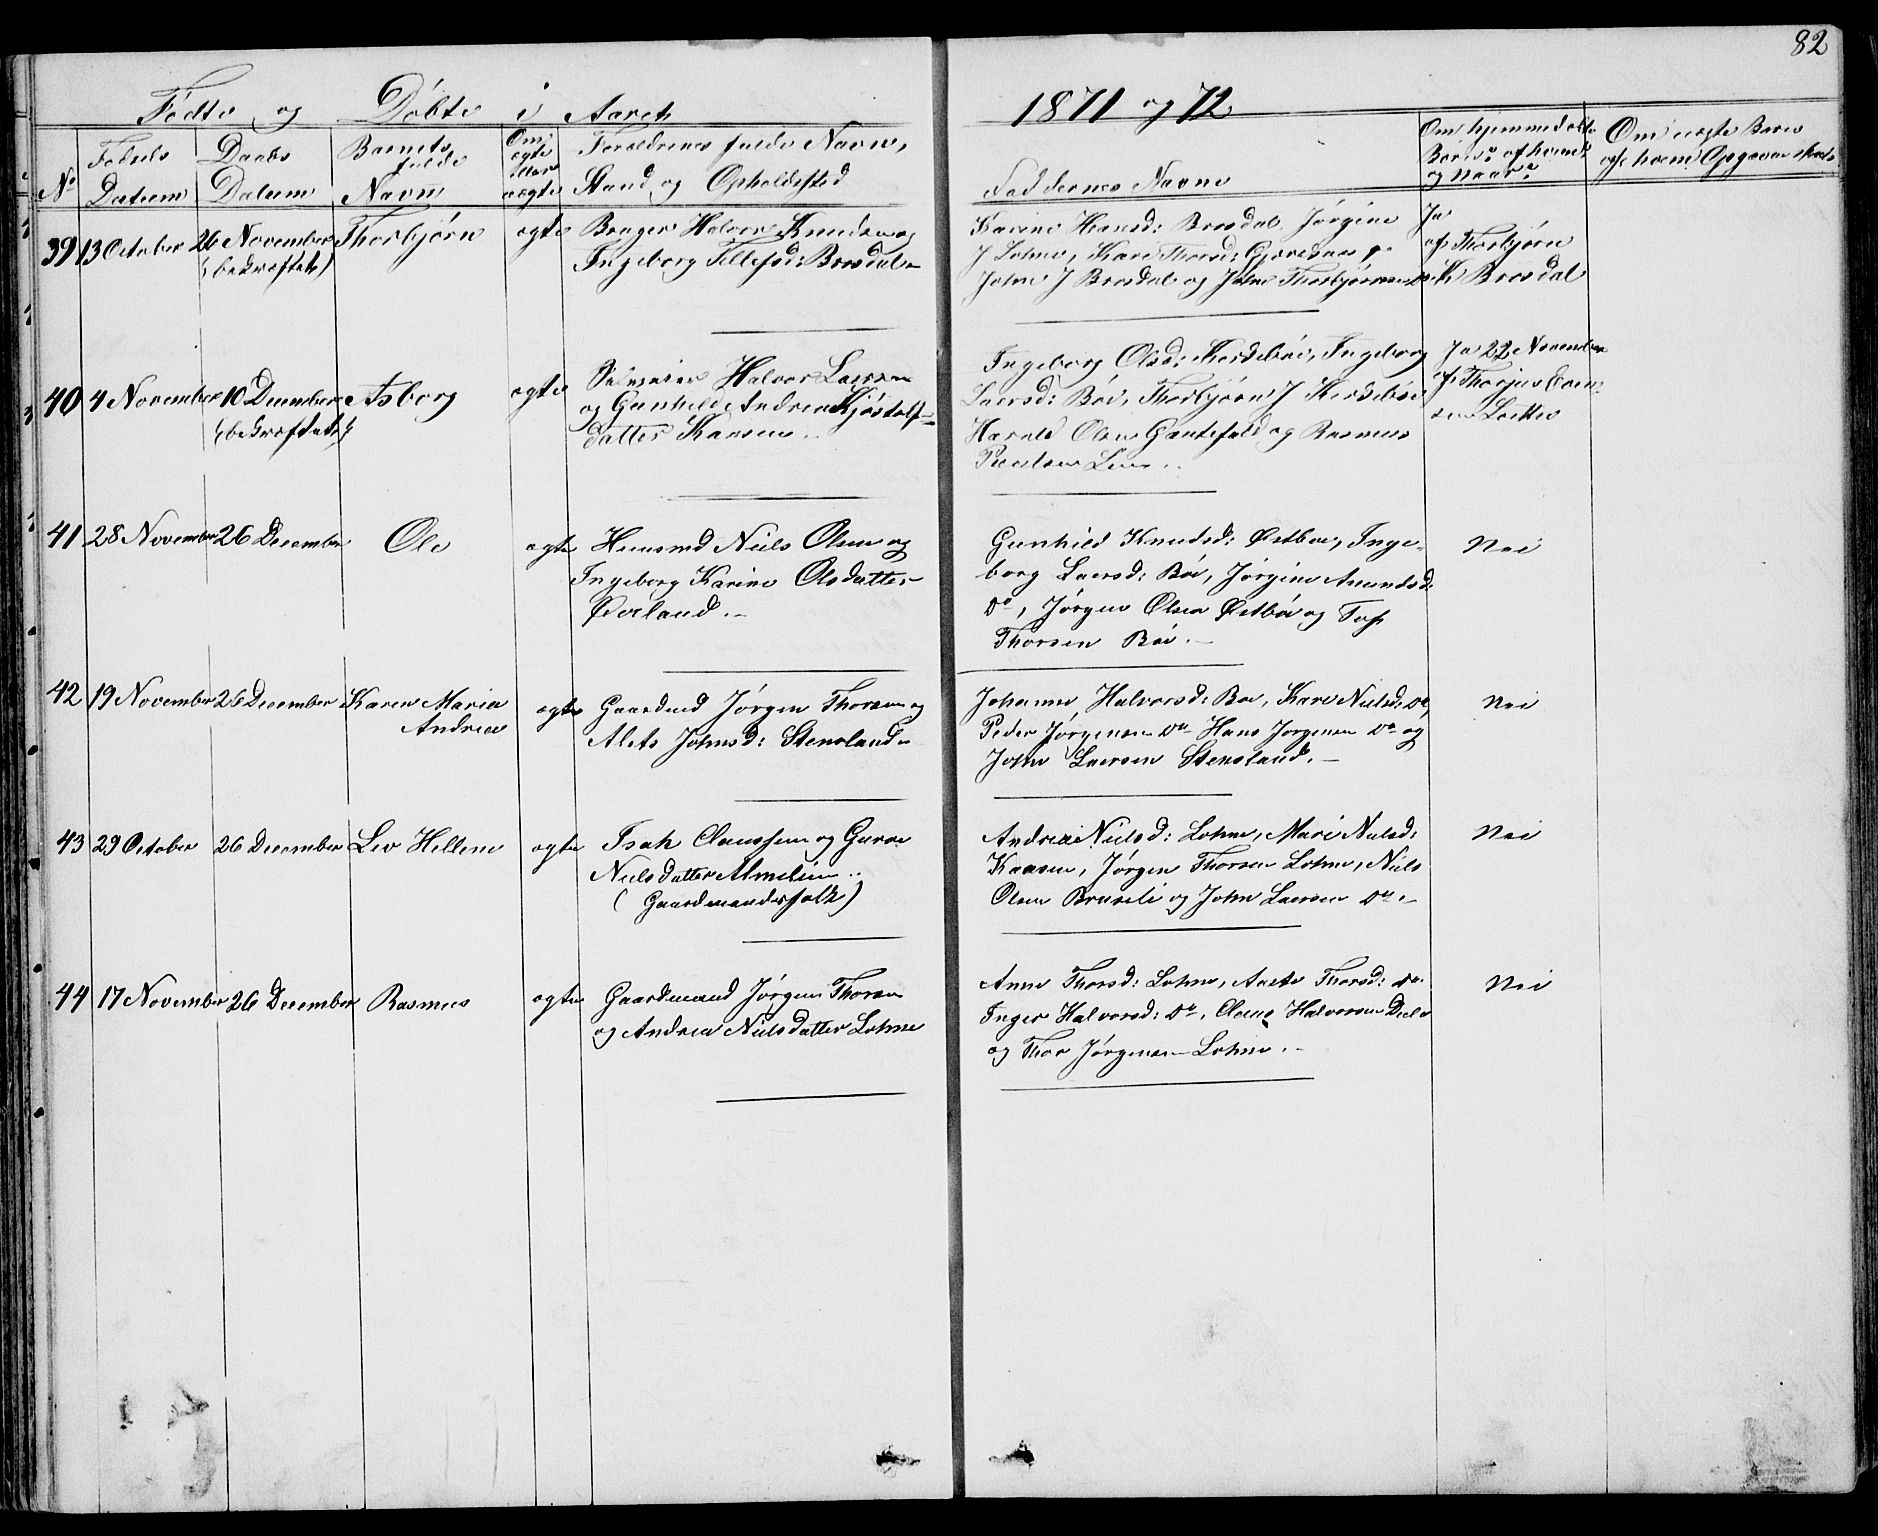 82
Fødte og Døbte i Aaret 1871 og 72
No
Fødsels Datum
Daabs Datum
Barnets fulde Navn
Om ægte eller uægte
Forældrenes fulde Navn, Stand og Opholdsted
Faddernes Navne
Om hjemmedøbte Børn? af hvem? og naar?
Om uægte Børn
39 13 October 26 November (bekræftet) Thorbjørn ægte
Bruger Halvor Knudsen og
Ingeborg Tellefsd: Brosdal
Karine Hansd: Brosdal, Jørgine
J Lohne, Kari Thorsd:
John J Brosdal og John Thorbjørnsen
Ja
af Thorbjørn
K Brosdal
40 4 November 10 December (bekræftet) Asborg ægte
Halvor Laersen
og Gunhild Andrea Kjøstolf-
datter Kaasen
Ingeborg Olsd: Ingeborg
Laersd: Bøe, Thorbjørn J
Harald Olsen og Rasmus
Ja 22 November
af Thorjus Even-
sen
41 28 November 26 December Ole ægte
Huusmd Niels Olsen og
Ingeborg Karine Olsdatter
Øverland
Gunhild Knudsd: Østbøe, Inge-
borg Laersd: Bøe, Jørgine Amundsd:
Do, Jørgen Olsen Østbøe og
Thorsen Bøe
Nei
42 19 November 26 December Karen Maria
Andrea ægte
Gaardmd Jørgen Thorsen og
Alets Johnsd: Stensland
Johanne Halvorsd: Bøe, Kari Nielsd: Do,
Peder Jørgensen Do Hans Jørgensen Do og
John Laersen Stensland.
Nei
43 29 October 26 December Lev Hellene ægte
Isak Claussen og Guroe
Nielsdatter Almelien
(Gaardmandsfolk)
Andrea Nielsd: Lohne, Mari Nielsd:
Kaasen, Jørgen Thorsen Lohne, Niels
Olsen Bruseli og John Laersen Do
Nei
44 17 November 26 December Rasmus ægte
Gaardmand Jørgen Thorsen
og Andrea Nielsdatter Lohne
Anne Thorsd: Lohne, Thorsd: Do
Inger Halvorsd: Do, Claus Halvorsen
og Thor Jørgensen Lohne
Nei